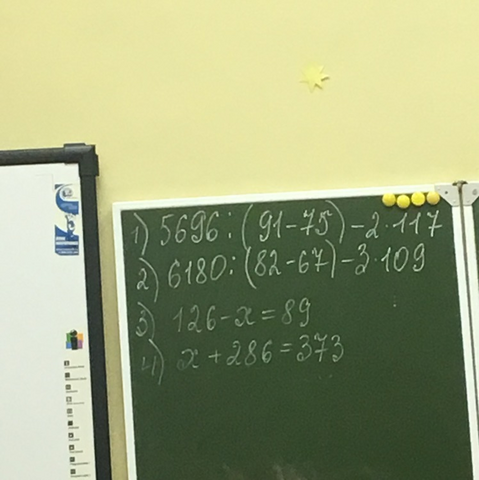 1) 5696 : (91-75) - 2·117
2) 6180 : (82-67) - 3·109
3) 126 - x = 89
4) x + 286 = 373